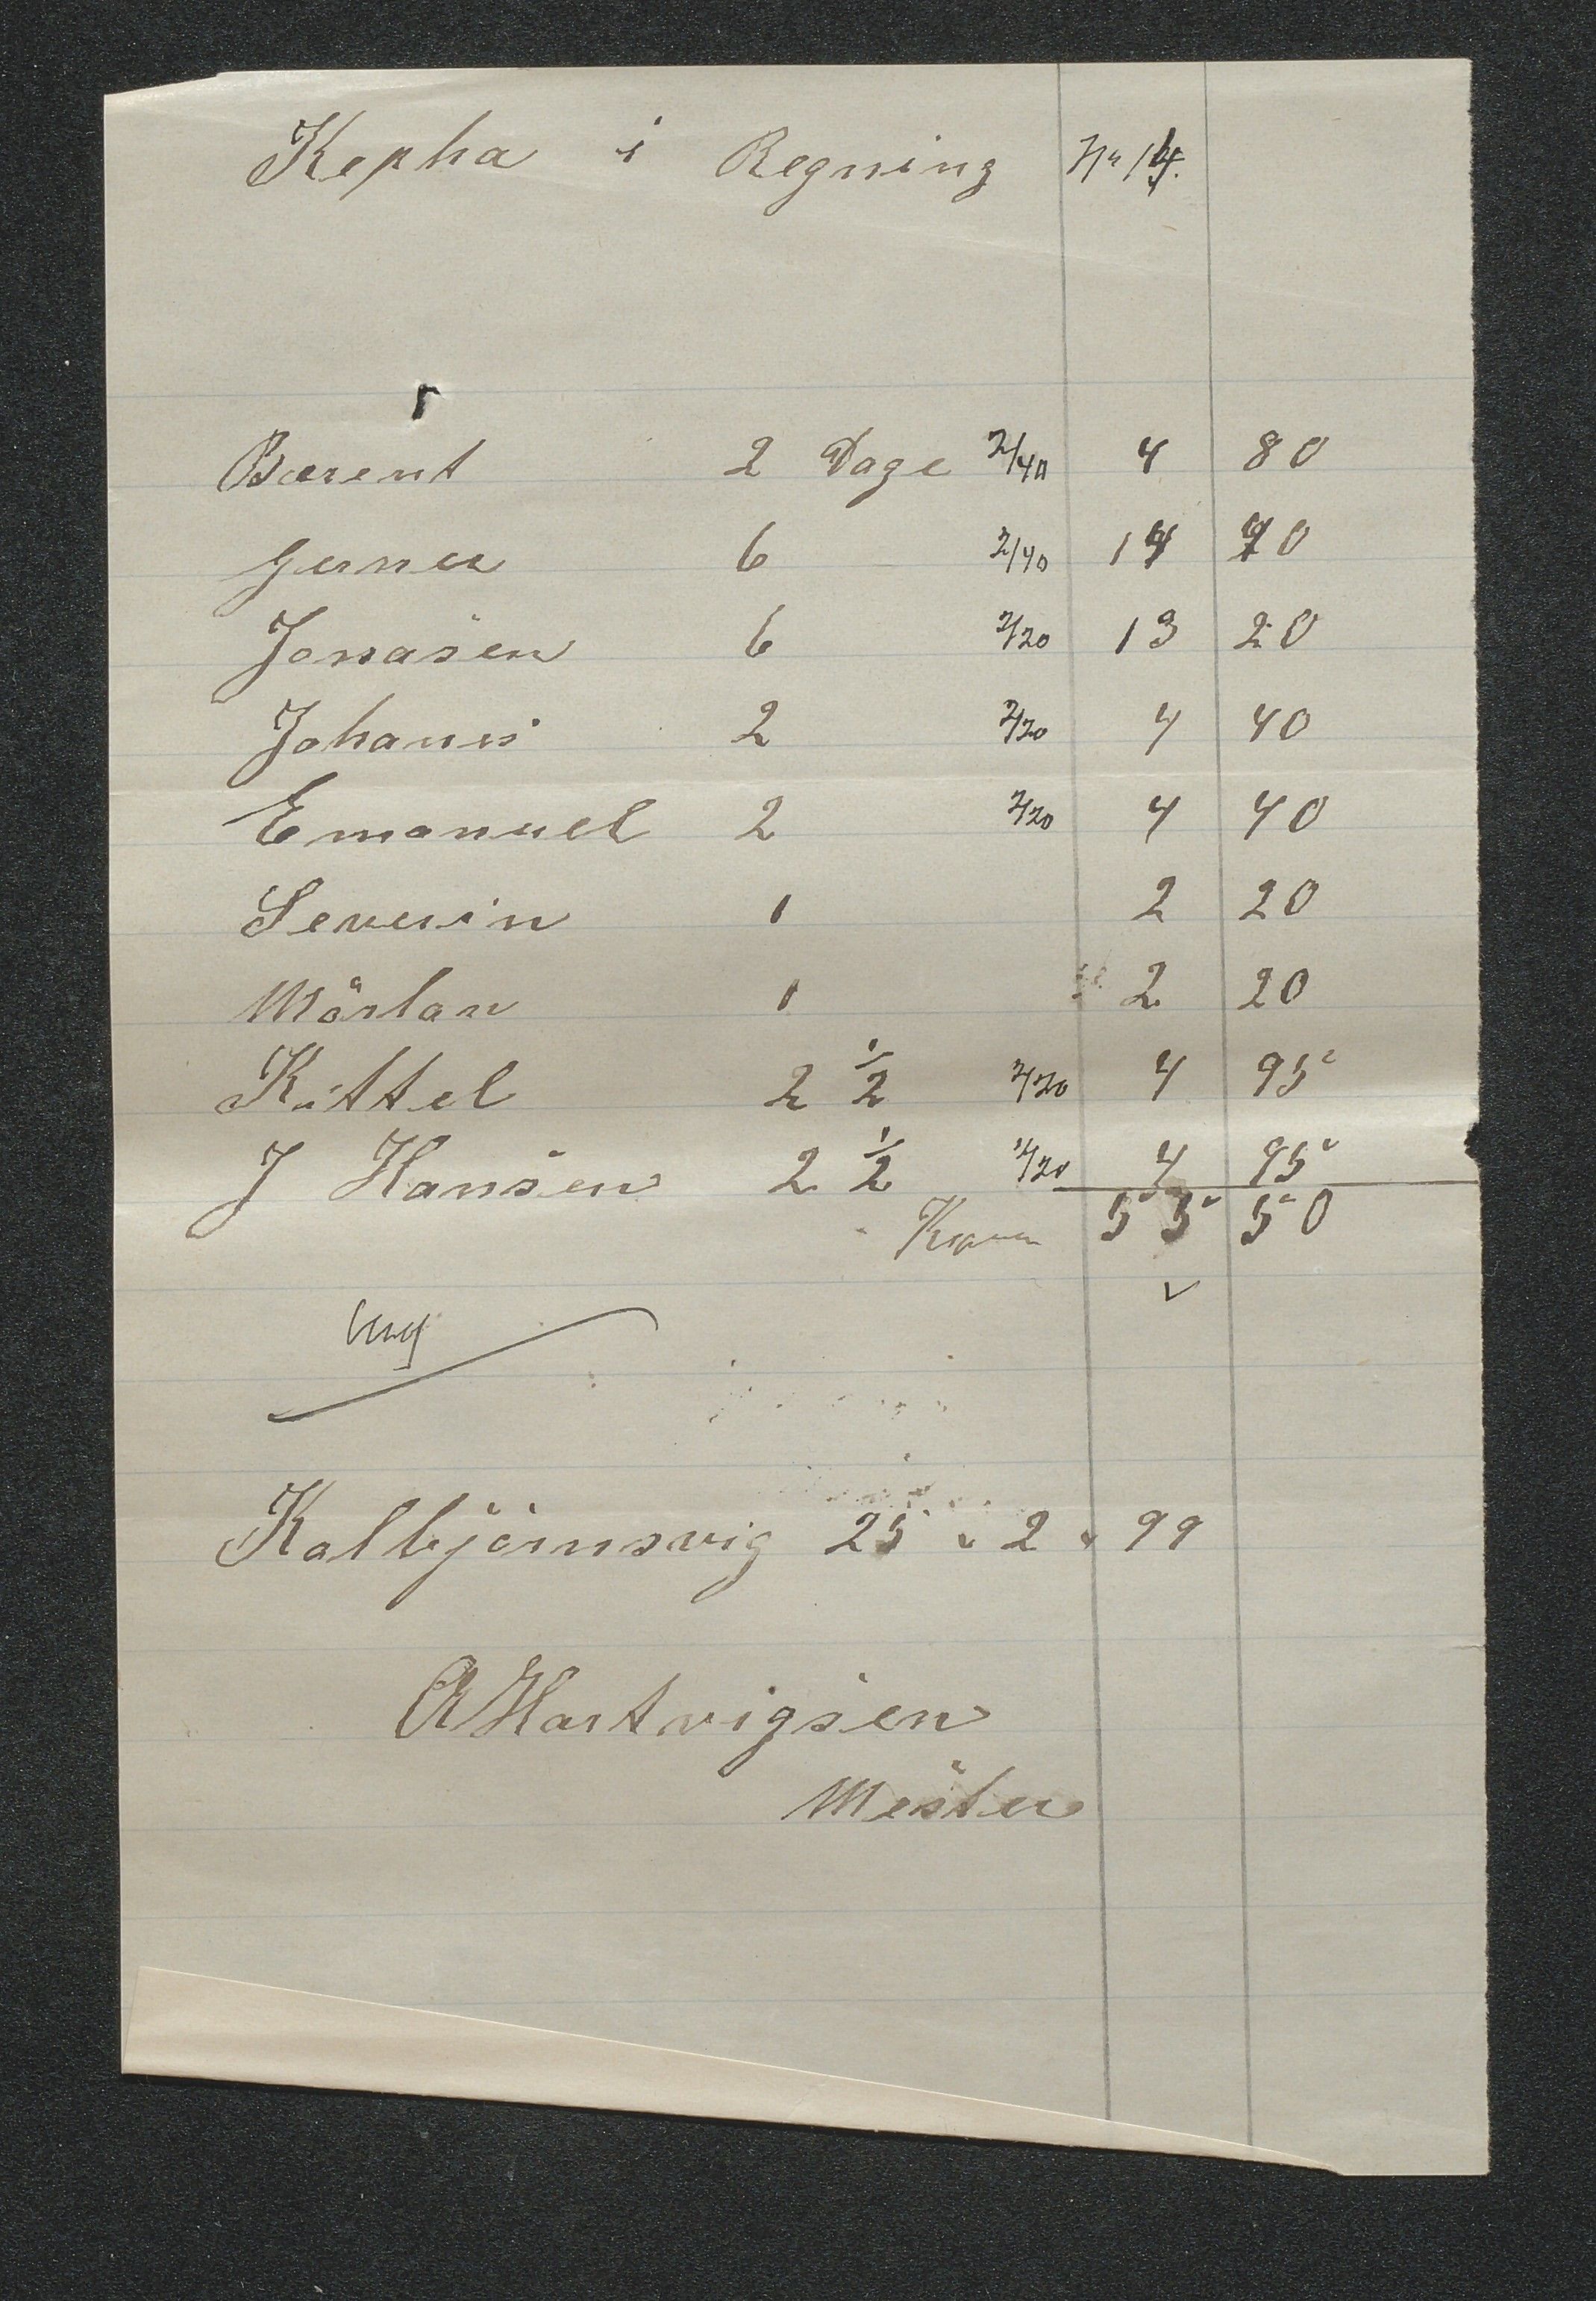 Kepha i Regning No 14.
Barent 2 Dage 2/40 4 80
Gerner 6 2/40 14 40
Jonasen 6 2/20 13 20
Johanes 2 2/20 4 40
Emanuel 2 2/20 4 40
Severin 1 2 20
Mårtan 1 2 20
Kittel 2 1/2 2/20 4 95
J Hansen 2 1/2 2/20 4 95
Kroner 55 50
Kolbjörnsvig 25 " 2 " 99
A Hartvigsen
Mester